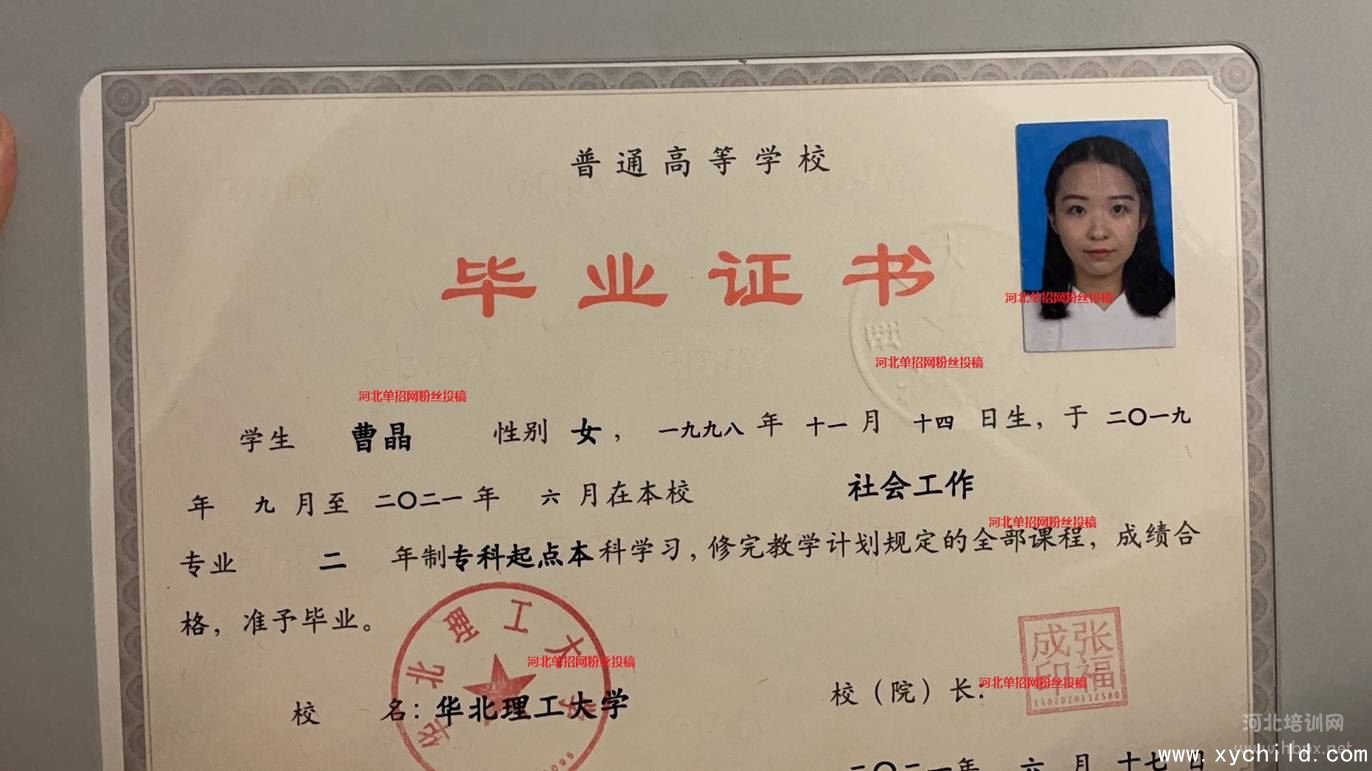 普通高等学校
毕业证书
河北单招网粉丝投稿
河北单招网粉丝投稿
河北单招网粉丝投稿
学生 曹晶 性别 女， 一九九八 年 十一 月 十四 日生，于 二〇一九
年 九 月至 二〇二一 年 六 月在本校 社会工作
河北单招网粉丝投稿
专业 二 年制专科起点本科学习，修完教学计划规定的全部课程，成绩合
格，准予毕业。
华北理工大学
河北单招网粉丝投稿
张福成印
河北单招网粉丝投稿
校 名：华北理工大学 校（院）长：
二〇二一年 六 月 十七 日
河北培训网
www.hbpx.net
www.xychild.com